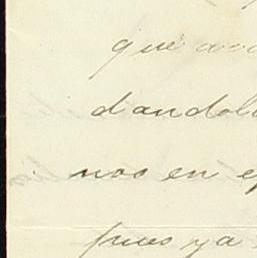 que
dandole
nos en
pues ya